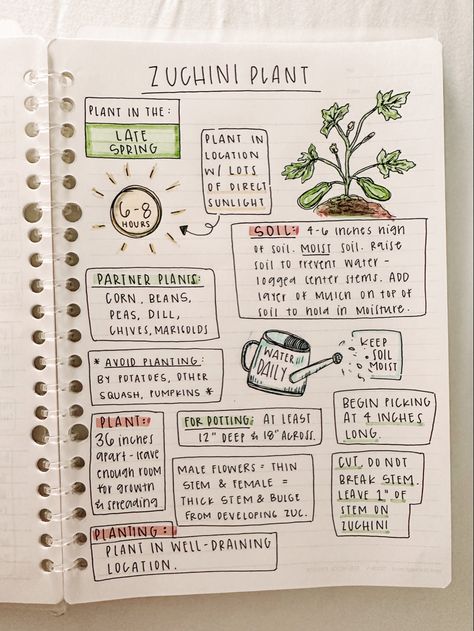 ZUCHINI PLANT
PLANT IN THE:
LATE
SPRING
PLANT IN
LOCATION
W/ LOTS
OF DIRECT
SUNLIGHT
6-8
HOURS
SOIL: 4-6 inches high
of soil. MOIST soil. Raise
soil to prevent water-
logged center stems. ADD
layer of mulch on top of
soil to hold in moisture.
PARTNER PLANTS:
CORN, BEANS,
PEAS, DILL,
CHIVES, MARIGOLDS
WATER
DAILY
KEEP
SOIL
MOIST
* AVOID PLANTING:
BY POTATOES, OTHER
SQUASH, PUMPKINS *
PLANT:
36 inches
apart - leave
enough room
for growth
& spreading
FOR POTTING: AT LEAST
12" DEEP & 18" ACROSS.
BEGIN PICKING
AT 4 INCHES
LONG.
MALE FLOWERS = THIN
STEM & FEMALE =
THICK STEM & BULGE
FROM DEVELOPING ZUC.
CUT, DO NOT
BREAK STEM.
LEAVE 1" OF
STEM ON
ZUCHINI
PLANTING:
PLANT IN WELL-DRAINING
LOCATION.